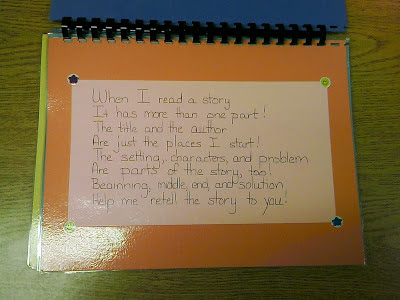 When I read a story
It has more than one part!
The title and the author
Are just the places I start!
The setting, characters, and problem
Are parts of the story, too!
Beginning, middle, end, and solution
Help me retell the story to you!